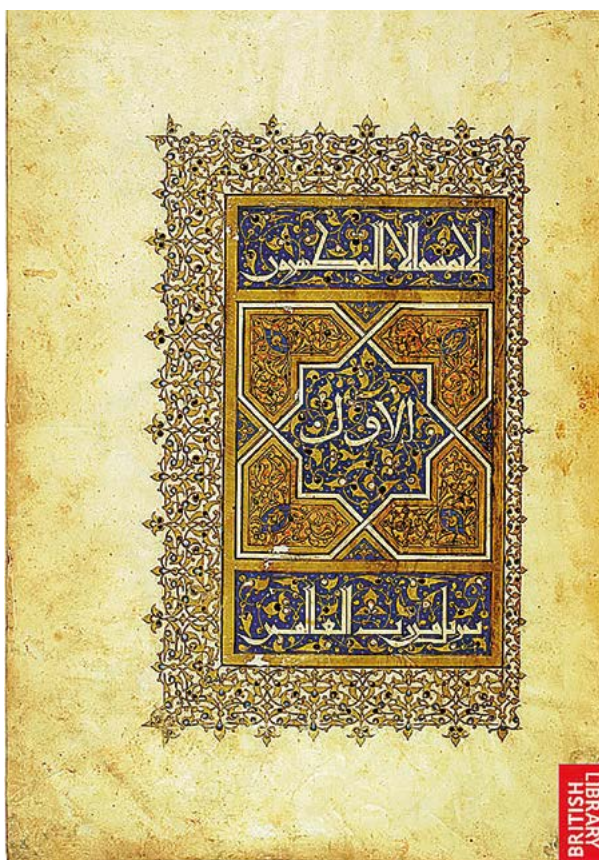 لا يمسه الا المطهرون
الاول
تنزيل من رب العالمين
BRITISH
LIBRARY